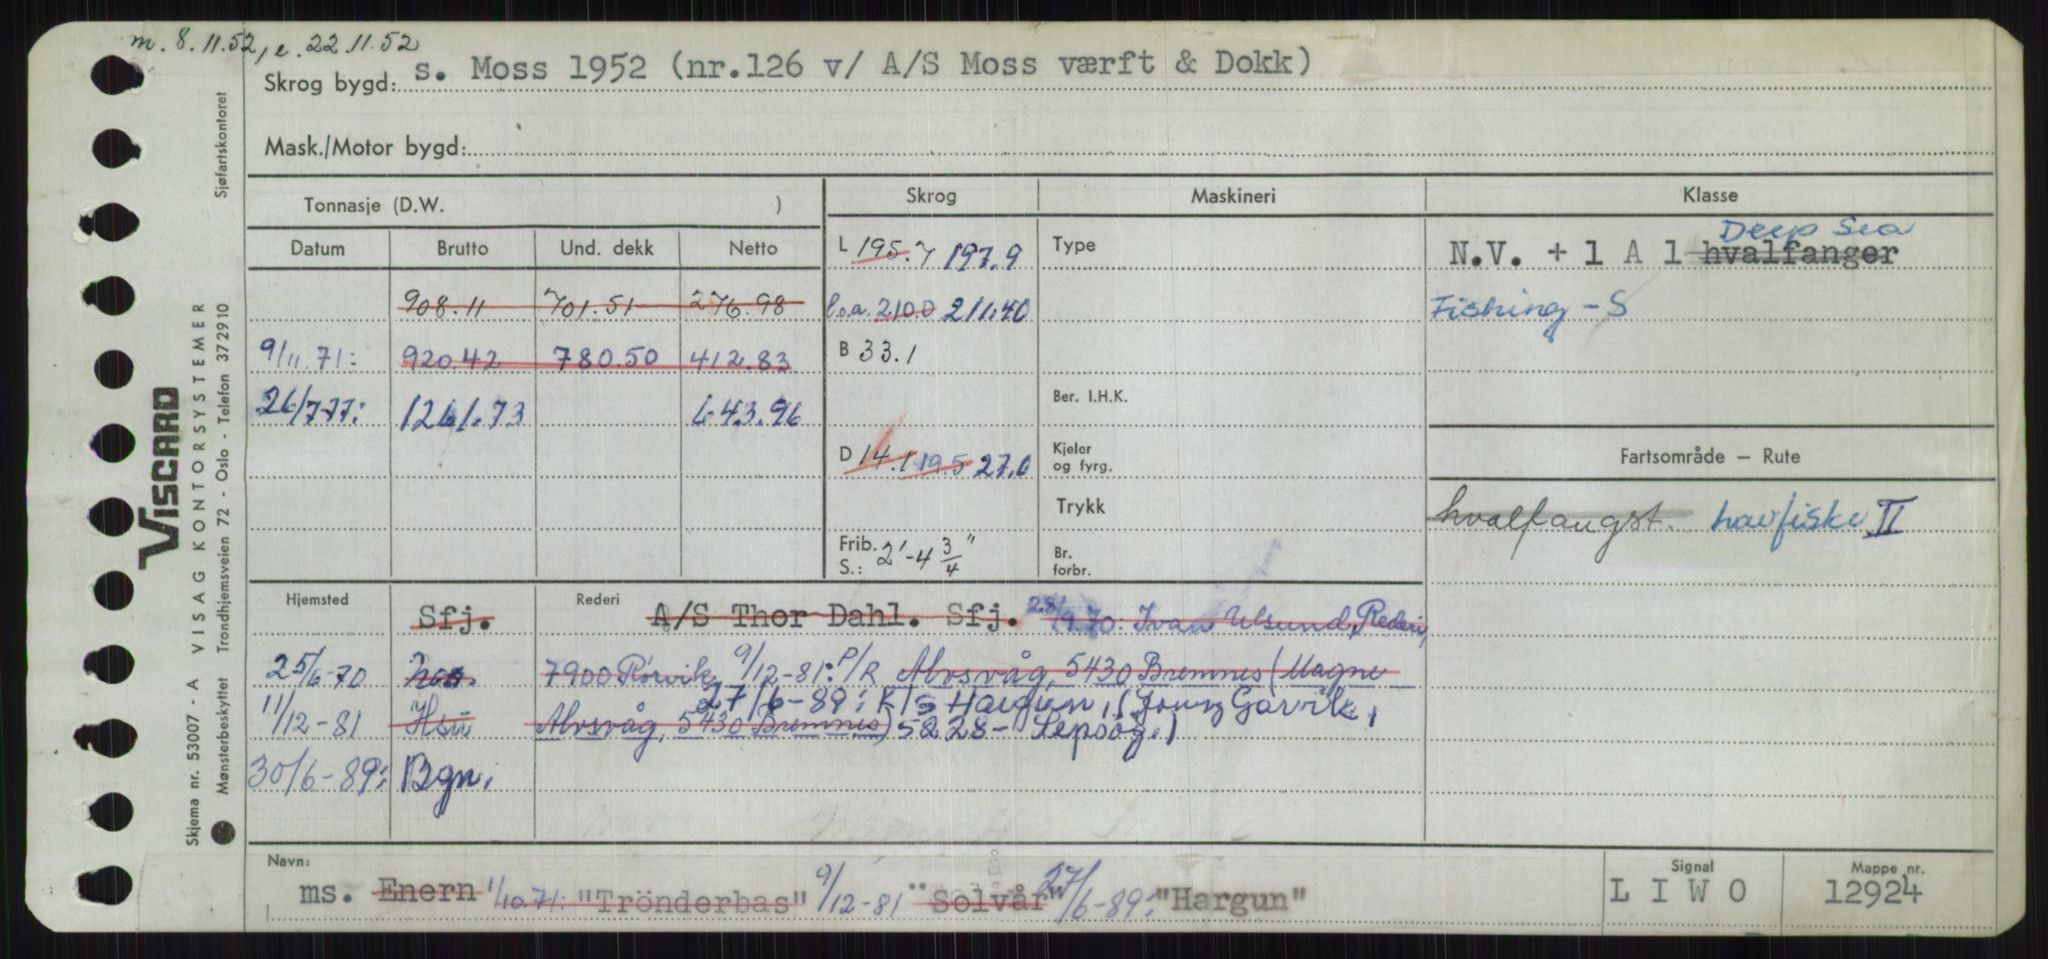 m. 8.11.52, e. 22.11.52
Skrog bygd: s. Moss 1952 (nr.126 v/ A/S Moss værft & Dokk)
Mask./Motor bygd:
Tonnasje (D.W. ) Skrog Maskineri Klasse
Datum Brutto Und. dekk Netto
L 195.7 197.9 Type N.V. + 1 A 1 hvalfanger Deep Sea
908.11 701.51 276.98 l.o.a. 210.0 211.40 Fishing - S
9/11.71: 920.42 780.50 412.83 B 33.1
26/7-77: 1261.73 643.96 Ber. I.H.K.
D 14.1 19.5 27.0 Kjeler og fyrg. Fartsområde – Rute
Trykk hvalfangst. havfiske II
Frib. S.: 2'-4 3/4" Br. forbr.
Hjemsted Sfj. Rederi A/S Thor Dahl. Sfj. 28/9.70: Ivan Ulsund, Rederi,
25/6-70 7900 Rørvik 9/12-81: P/R Alvsvåg, 5430 Bremnes (Magne
27/6-89: K/S Hargun, (Jonny Garvik,
11/12-81 Alvsvåg, 5430 Bremnes) 5228-
30/6-89: Bgn.
Navn: ms. Enern 1/10 71: "Trönderbas" 9/12-81 "Solvår" 27/6-89: "Hargun"
Signal L I W O
Mappe nr. 12924
VISCARD
Skjema nr. 53007 - A VISAG KONTORSYSTEMER Sjøfartskontoret
Mønsterbeskyttet Trondhjemsveien 72 - Oslo - Telefon 372910